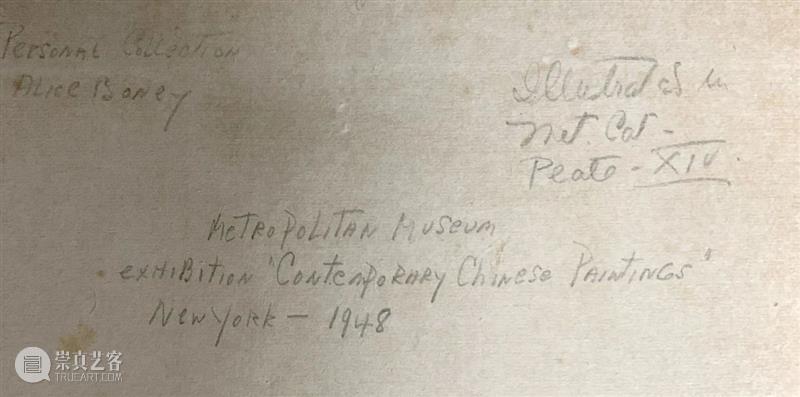 Personal Collection
Alice Boney
Illustrated in
Met. Cat -
Plate - XIV.
Metropolitan Museum
exhibition "Contemporary Chinese Paintings"
New York - 1948
崇真艺客
TRUEART.COM